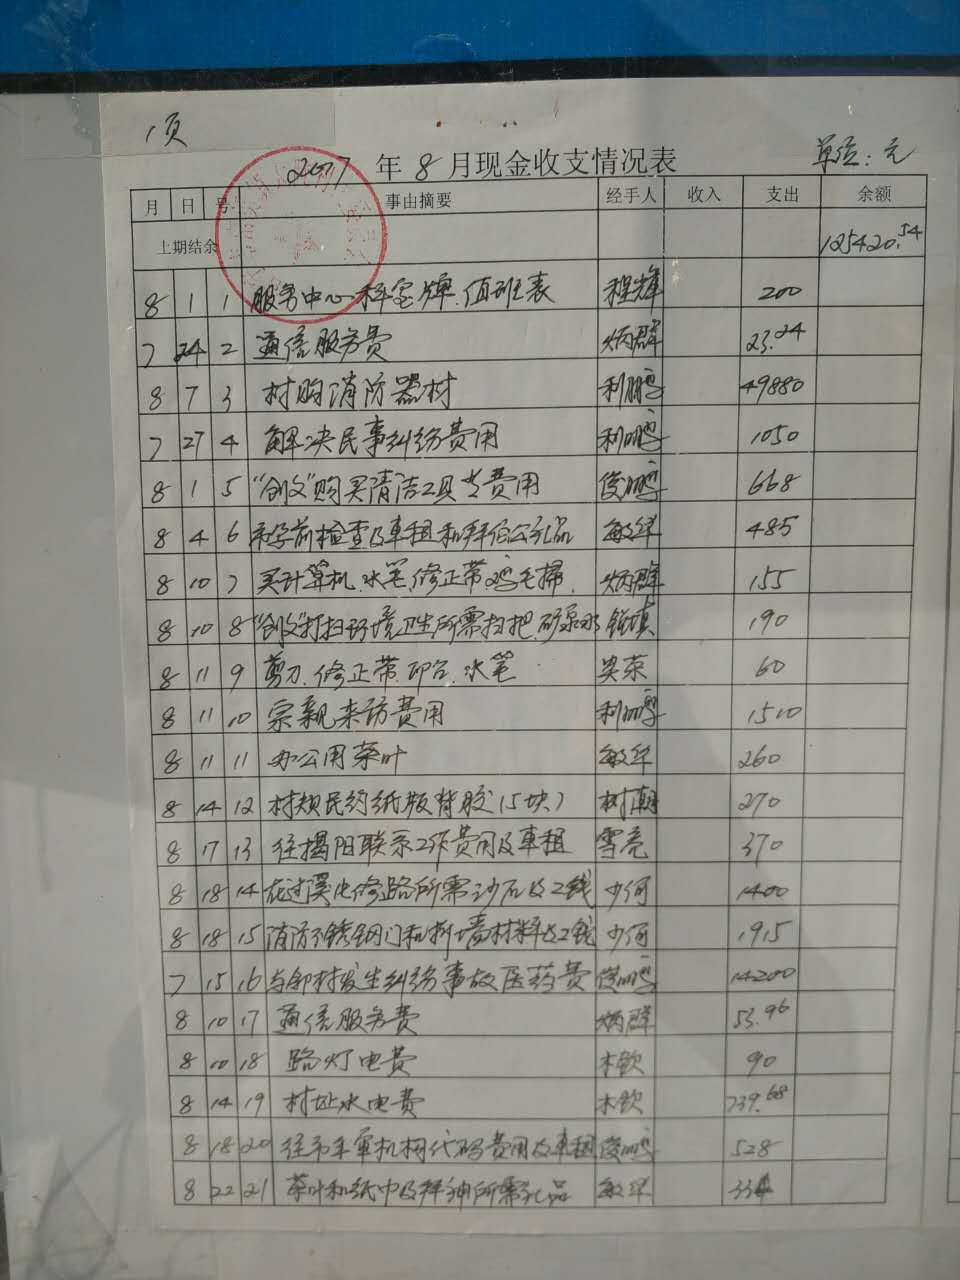 1页
2017 年 8 月现金收支情况表 单位：元
月 日 号 事由摘要 经手人 收入 支出 余额
上期结余 125420.54
8 1 1 服务中心科室牌.值班表 程辉 200
7 24 2 通信服务费 炳群 23.24
8 7 3 村购消防器材 利鹏 49880
7 27 4 解决民事纠纷费用 利鹏 1050
8 1 5 "创文"购买清洁工具等费用 俊鹏 668
8 4 6 孕前检查及車租和拜伯公礼品 敏华 485
8 10 7 买计算机.水笔.修正带.鸡毛掃. 炳群 155
8 10 8 "创文"打扫环境卫生所需扫把.矿泉水 190
8 11 9 剪刀.修正带.印台.水笔 奕荣 60
8 11 10 宗親来访费用 利鹏 1510
8 11 11 办公用茶叶 敏华 260
8 14 12 村规民约纸版背胶(5块) 树潮 270
8 17 13 往揭阳联系工作费用及車租 雪亮 370
8 18 14 修路所需沙石及工钱 少河 1400
8 18 15 消防不锈钢门和拆墙材料及工钱 少河 1915
7 15 16 与邻村发生纠纷事故医药费 俊鹏 14200
8 10 17 通信服务费 炳群 53.96
8 10 18 路灯电费 木钦 90
8 14 19 村址水电费 木钦 739.68
8 18 20 往市年审机构代码费用及車租 俊鹏 528
8 22 21 茶叶和纸巾及拜神所需礼品 敏华 334